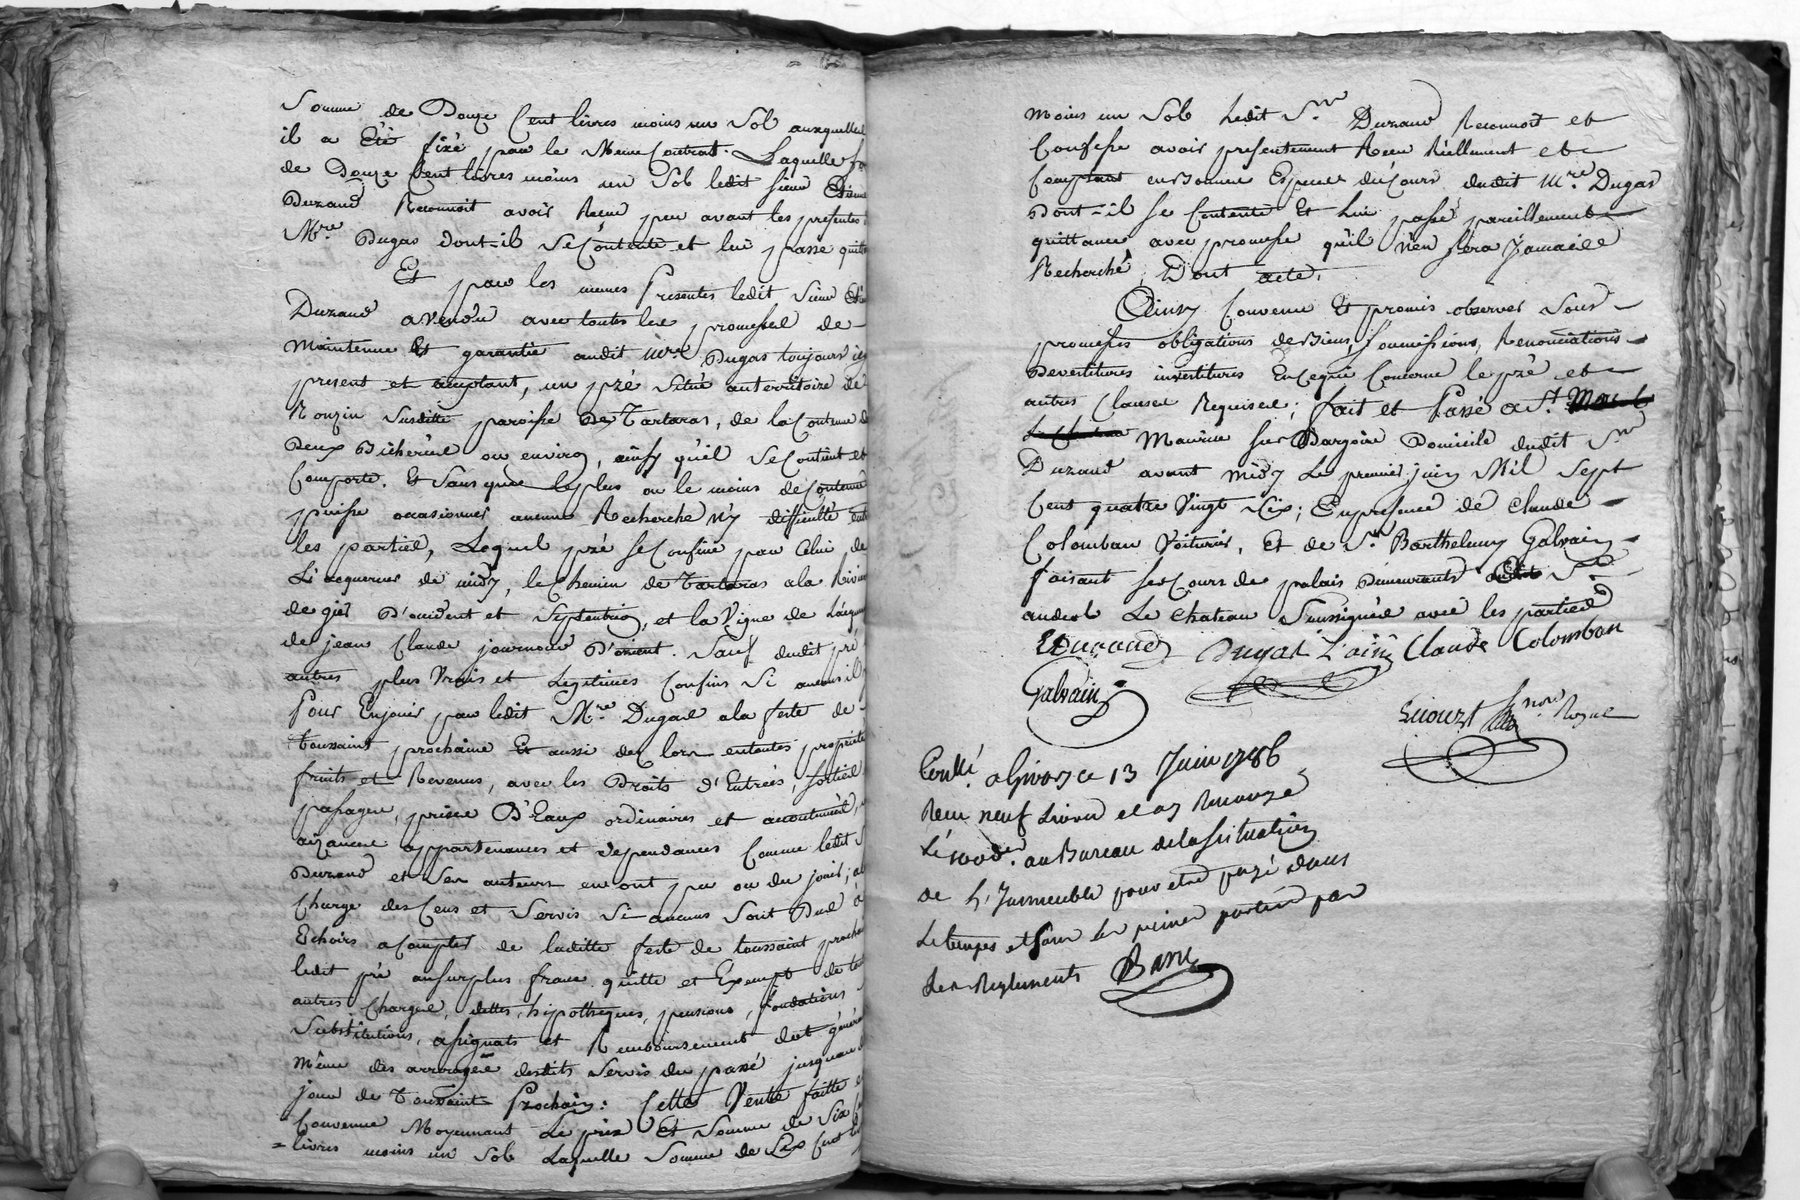 Somme de Douze Cent livres moins un Sol auxquelles
il a Eté fixé par le Meme Contrat. Laquelle
de Douze Cent livres moins un Sol ledit sieur Etienne
Durand Reconnoit avoir Receu peu avant les presentes
Mre. Dugas dont-il Se Contente et lui passe quitt
Et par les memes Presentes ledit Sieur
Durand a Vendu avec toutes les promesses de
Maintenue Et garantie audit Mre Dugas toujours icy
present et acceptant, un pré Situé au territoire de
Rouzin Susditte paroisse de Tartaras, de la Contenue de
Deux Bicherées ou environ, ainsy qu'il Se Contient et
Comporte. Et Sans que le plus ou le moins de Contenue
puisse occasionner aucune Recherche n'y difficulté entre
les parties, Lequel pré se Confine par Celui de
L'acquereur de midy, le Chemin de Tartaras a la Riviere
de giès D'occident et Septentrion, et la Vigne de L'acquereur
de jean Claude journoud D'orient. Sauf dudit pré
autres plus Vrais et Legitimes Confins Si aucuns il
Pour Enjouir par ledit Mre. Dugas a la feste de
toussaint prochaine Et aussi des lors en toutes proprieté
fruits et Revenus, avec les Droits d'Entrées, sorties
passages, prises D'Eaux ordinaires et accoutumés,
aizances appartenances et dependances Comme ledit S
Durand et Ses auteurs en ont pu ou du jouir; a
Charge des Cens et Servis Si aucuns Sont Dus à
Echoirs a Compter de laditte feste de toussaint prochaine
ledit pré au surplus franc quitte et Exempt de tout
autres Charges, dettes, hipotheques, pensions, fondations
Substitutions, assignats et Remboursement dot général
Même des arrerages desdits Servis du passé jusqu'au
jour de Toussaint Prochain: Cette Vente faitte et
Convenue Moyennant Le prix Et Somme de Six
= livres moins un Sol Laquelle Somme de Six Cent
moins un Sol Ledit Sr. Durand Reconnoit et
Confesse avoir presentement Receu Réellement et
Comptant en Bonnes Especes du Cours dudit Mre. Dugas
Dont-il Se Contente Et Lui passé pareillement
quittance avec promesse qu'il n'en sera Jamais
Recherché, Dont acte.
Ainsy Convenu Et promis observer Sous
promesses obligations de Biens, Soumissions, Renonciations
Devestitures investitures En ce qui Concerne le pré et
autres Clauses Requises; fait et Passé a St.
Maurice sur Dargoire Domicile dudit Sr
Durand avant midy Le premier juin Mil Sept
Cent quatre Vingt Six; En presence de Claude
Colomban Voiturier, Et de Sr. Barthelemy Galvain
faisant ses Cours de palais Demeurants St
andeol Le Chateau Soussignés avec les parties
EDurand Dugas L'ainé Claude Colomban
Galvain
nore Royal
Conllé. a Givors ce 13 Juin 1786
Receu neuf Livres et as Renvoyé
Lé 100der. au Bureau de la Situation
de L'Immeuble pour etre payé dans
Le temps et sous Les peines portées par
Les Reglements